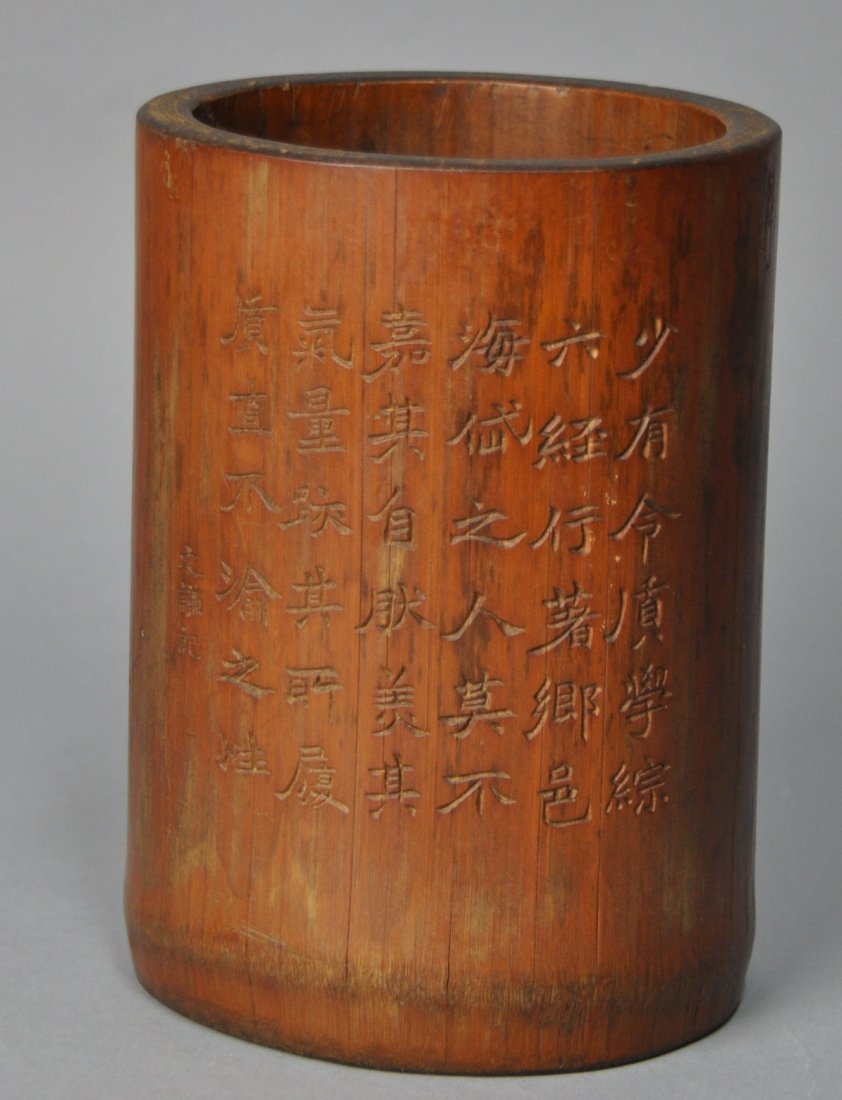 少有令質學綜
六経行著鄉邑
海岱之人莫不
嘉其自肰美其
氣量跡其所履
質直不渝之性